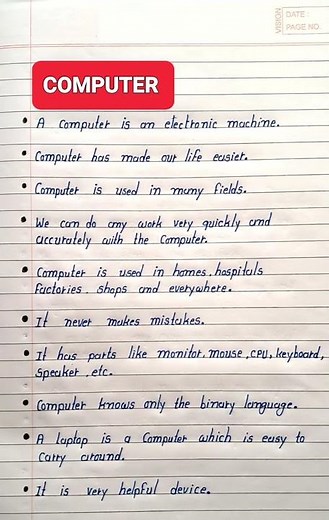 VISION
DATE
PAGE NO.
COMPUTER
• A Computer is an electronic machine.
• Computer has made our life easier.
• Computer is used in many fields.
• We can do any work very quickly and
accurately with the Computer.
• Computer is used in homes, hospitals
factories, shops and everywhere.
• It never makes mistakes.
• It has parts like monitor, mouse, CPU, keyboard,
speaker, etc.
• Computer knows only the binary language.
• A laptop is a Computer which is easy to
carry around.
• It is very helpful device.